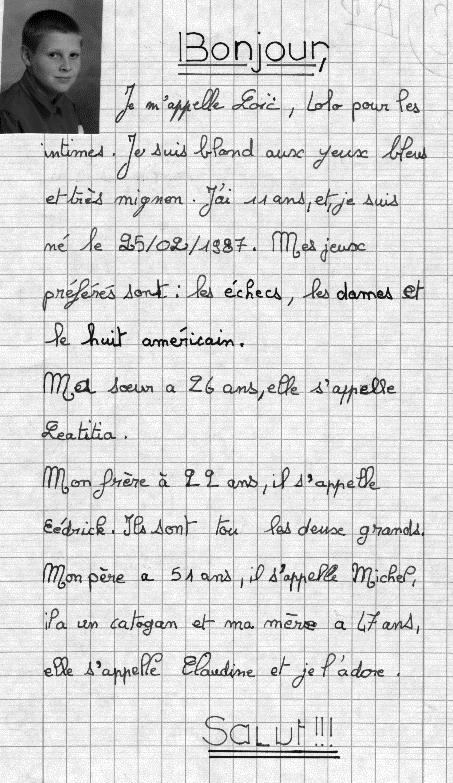 Bonjour,
Je m'appelle Loïc, Lolo pour les
intimes. Je suis blond aux yeux bleus
et très mignon. J'ai 11 ans, et, je suis
né le 25/02/1987. Mes jeux
préférés sont : les échecs, les dames et
le huit américain.
Ma sœur a 26 ans, elle s'appelle
Leatitia.
Mon frère à 22 ans, il s'appelle
Cédrick. Ils sont tou les deux grands.
Mon père a 51 ans, il s'appelle Michel,
il a un catogan et ma mère a 47 ans,
elle s'appelle Claudine et je l'adore.
Salut !!!